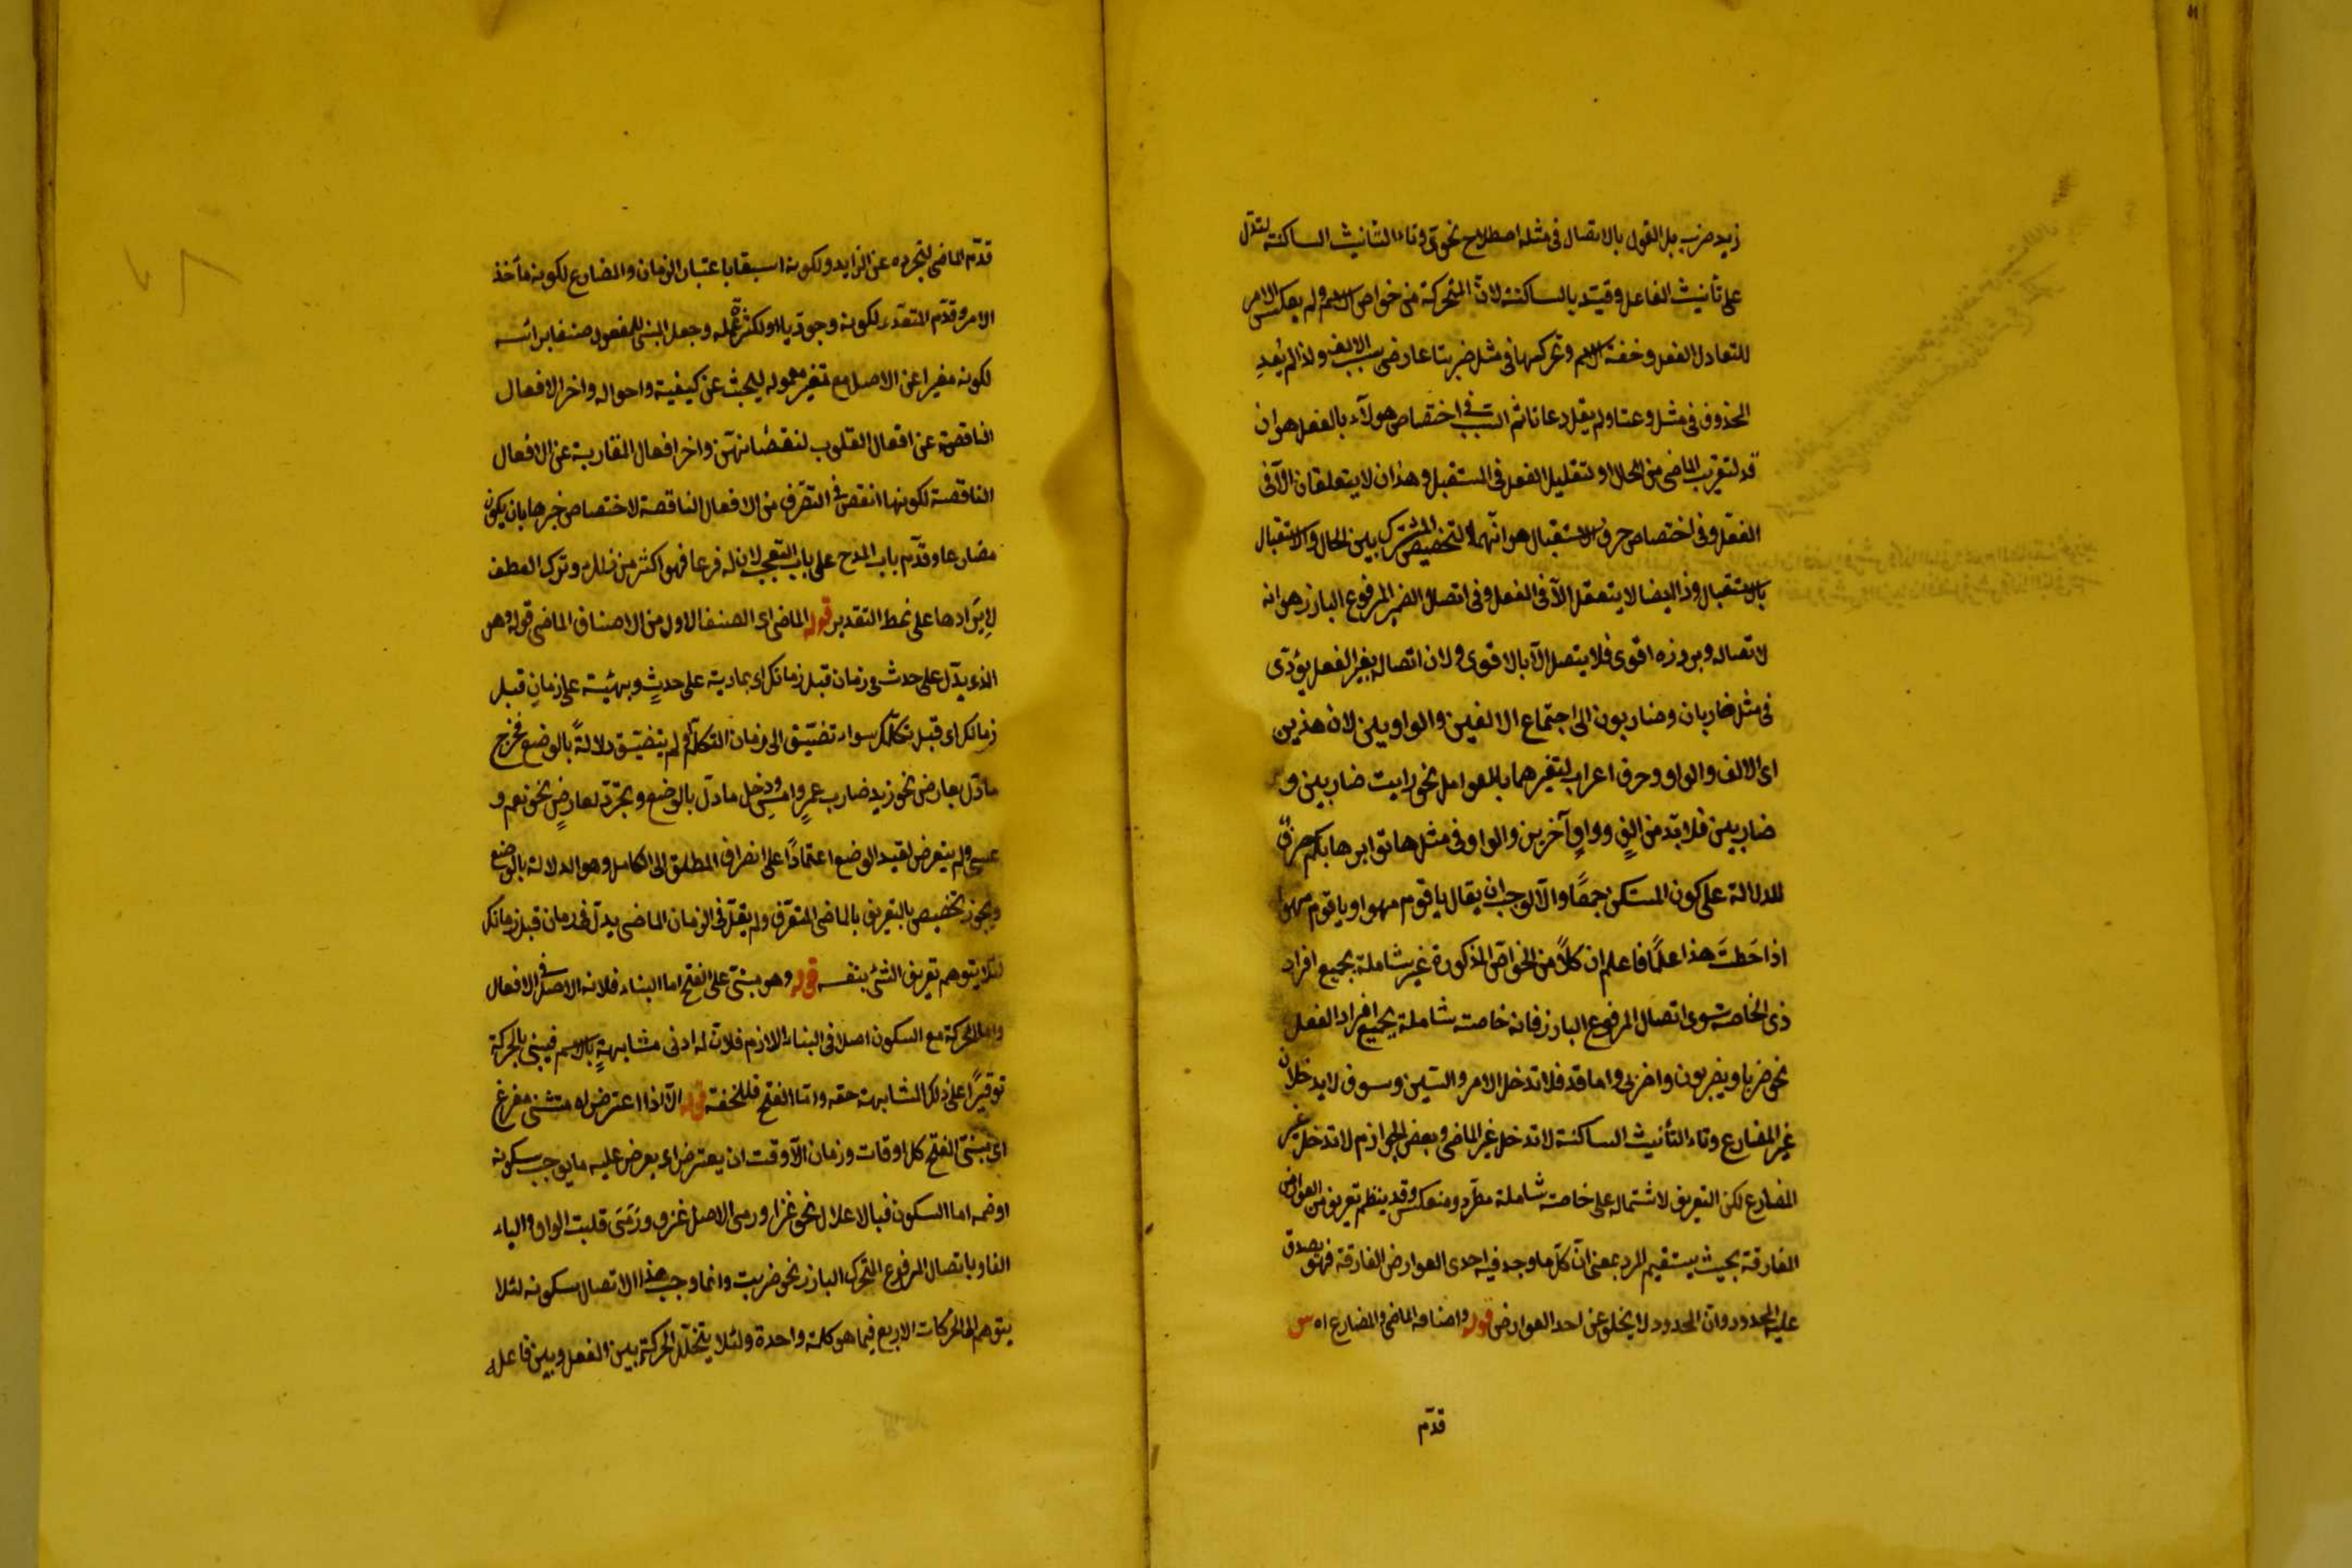 زيد ضرب بل القول بالاتصال فى مثله اصطلاح نحوى وتاء التانيث الساكنة لتدل
على تأنيث الفاعل وقيّد بالساكنة لانّ المتحركة من خواص الاسم ولم يعكس الامر
للتعادل الفعل وخفة الاسم وتحركها فى مثل ضربتا عارضى بسبب الالف ولذا لم يُعِد
المحذوف فى مثل وعتا ولم يقل دعاتا ثم السبب فى اختصاص هولآء بالفعل هو ان
قد لتقريب الماضى من الحال او لتقليل الفعل فى المستقبل وهذان لا يتعلقان الّا فى
الفعل وفى اختصاص حرف الاستقبال هو انّهما لتخصيص المشترك بين الحال والاستقبال
بالاستقبال وذا ايضا لا يتعقل الّا فى الفعل وفى اتصال الضمير المرفوع البارز هو انه
لاتصاله وبروزه اقوى فلا يتصل الّا بالاقوى ولان اتصاله بغير الفعل يؤدّى
فى مثل ضاربان وضاربون الى اجتماع الالفين والواوين لان هذين
اى الالف والواو وحرف اعراب لتغيرهما بالعوامل نحو رايت ضاربين و
ضاربين فلا بدّ من الفٍ وواوٍ آخرين والواو فى مثل هاتوا برهانكم حرف
للدلالة على كون المستكن جمعًا والّا لوجب ان يقال يا قوم مهوا ويا قوم مهوا
اذا حَطتَ هذا علمًا فاعلم ان كلاً من الخواصّ المذكورة غير شاملة بجميع افراد
ذى الخاصة سوى اتصال المرفوع البارز فانه خاصة شاملة بجميع افراد الفعل
نحو ضربا ويضربون واضربى واما قد فلا تدخل الامر والسّين وسوف لا يدخلان
غير المضارع وتاء التأنيث الساكنة لا تدخل غير الماضى وبعض الجوازم لا تدخل غير
المضارع لكن التعريف لاشتماله على خاصة شاملة مطّرد ومنعكس وقد ينظم تعريف من العوارض
الفارقة بحيث يستقيم الرد بمعنى انّ كلّ ما وجد فيه احدى العوارض الفارقة فهو يصدق
عليه المحدود وانّ المحدود لا يخلو عن احد العوارض قوله واصنافه الماضى والمضارع اه س
قدّم
قدّم الماضى لتجرده عن الزايد ولكونه اسبق باعتبار الزمان والمضارع لكونه مأخذ
الامر وقدّم المتعدى لكونه وجوديا او لكثرة عمله وجعل المبنى للمفعول صنفا برائسه
لكونه مغيرا عن الاصل مع تغير معموله ليبحث عن كيفيته واحواله واخر الافعال
الناقصة عن افعال القلوب لنقصانهنّ واخر افعال المقاربة عن الافعال
الناقصة لكونها انقص فى التصّرف من الافعال الناقصة لاختصاص خبرها بان يكون
مضارعا وقدّم باب المدح على باب التعجب لان له فرعا فهو اكثر من فرا وترك العطف
لِايرَادها على نمط التقدير قوله الماضى اى الصنف الاول من الاصناف الماضى قوله وهو
الذى يدّل على حدث فى زمان قبل زمانك اى بماديته على حدثٍ وبهيئته على زمانٍ قبل
زمانك اى قبل تكلّمك سواء تضيّق الى زمان التكلّم او لم يتضيّق دلالةً بالوضع فخرج
ما دّل بعارض نحو زيد ضارب عمرٍو امسِ ودخل ما دلّ بالوضع وتجرّد لعارضٍ نحو نعم و
عسى ولم يتعرض لقيد الوضع اعتمادًا على انصراف المطلق الى الكامل وهو الدلالة بالوضع
ويجوز تخصيص بالتعريف بالماضى المتعرّف ولم يقل فى الزمان الماضى يدلّ فى زمان قبل زمانك
لئلا يتوهم تعريف الشئ بنفسه قوله وهو مبنىّ على الفتح اما البناء فلانه الاصل فى الافعال
واما الحركة مع السكون اصل فى البناء اللازم فلانّ له ادنى مشابهةٍ بالاسم فيبنى بالحركة
توقيرًا على ذلك المشابهته حقه وامّا الفتح فللخفة قوله الّا اذا اعترض له مستثنى مفرغ
اى مبنىّ الفتح كل اوقات وزمان الّا وقت ان يعترض اى يعرض عليه ما يوجب سكونه
او ضمه اما السكون فبالاعلال نحو غزا ورمى الاصل غزو ورَمَىَ قلبت الواو والياء
الفا وباتصال المرفوع المتحرك البارز نحو ضربت وانما وجب هذا الاتصال سكونه لئلا
يتوهم الحركات الاربع فيما هو كلمة واحدة ولئلا يتخلّل الحركة بين الفعل وبين فاعله